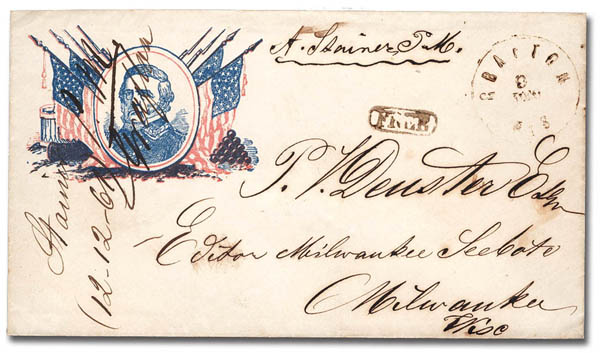 A. Stainer, P.M.
DAYTON
FREE
P. V. Deuster Esq
Editor Milwaukee Seebote
Milwaukee
Wisc
12-12-61